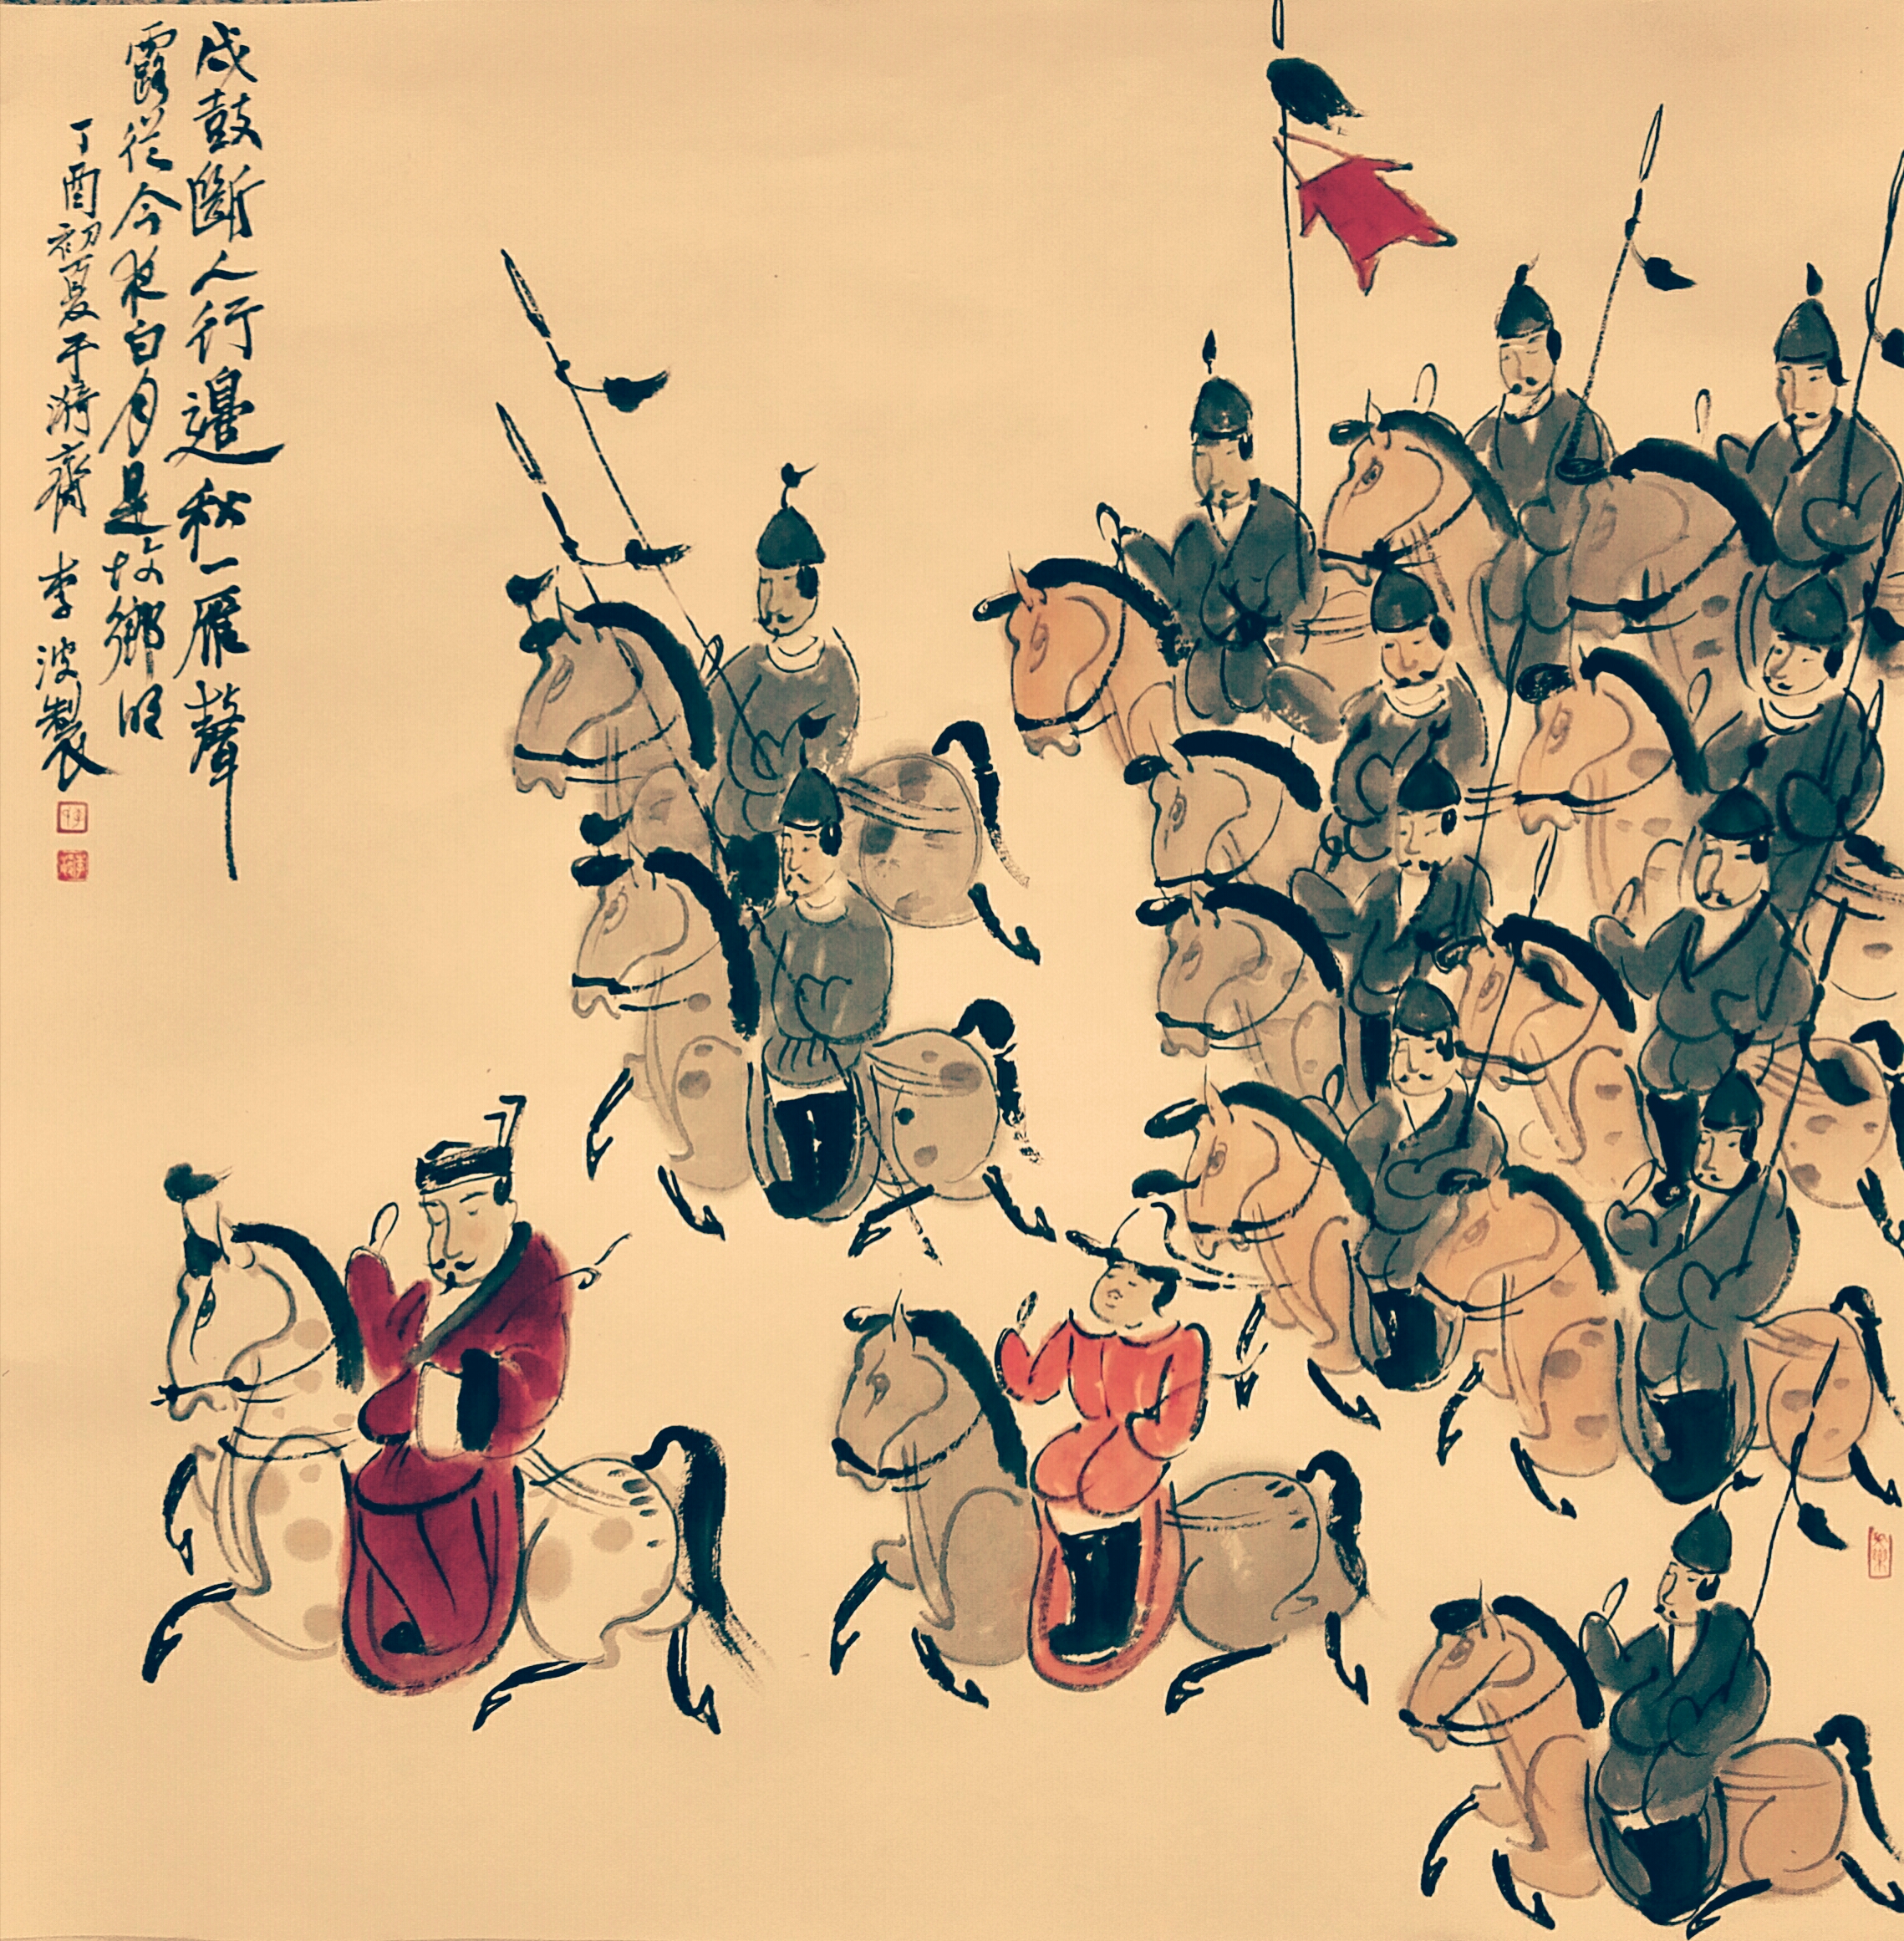 戍鼓斷人行邊秋一雁聲
露從今夜白月是故鄉明
丁酉初夏于漪齋 李波製